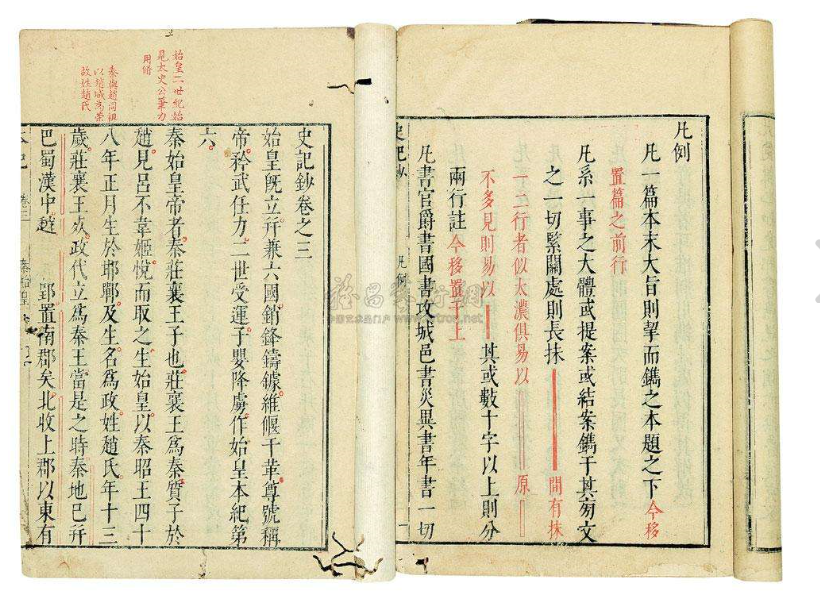 凡例
凡一篇本末大旨則挈而鐫之本題之下今移
置篇之前行
凡系一事之大體或提案或結案鐫于其旁文
之一切緊關處則長抹 間有抹
一二行者似太濃俱易以 原
不多見則易以 其或數十字以上則分
兩行註今移置于上
凡書官爵書國書攻城邑書災異書年書一切
史記鈔 凡例
始皇二世紀始
是太史公筆力
用繕
秦與趙同祖
以趙城為榮
故姓趙氏
史記鈔卷之三
始皇旣立幷兼六國銷鋒鑄鐻維偃干革尊號稱
帝矜武任力二世受運子嬰降虜作始皇本紀第
六
秦始皇帝者秦莊襄王子也莊襄王爲秦質子於
趙見呂不韋姬悅而取之生始皇以秦昭王四十
八年正月生於邯鄲及生名爲政姓趙氏年十三
歲莊襄王死政代立爲秦王當是之時秦地已幷
巴蜀漢中越 郢置南郡矣北收上郡以東有
本紀 卷三 秦始皇